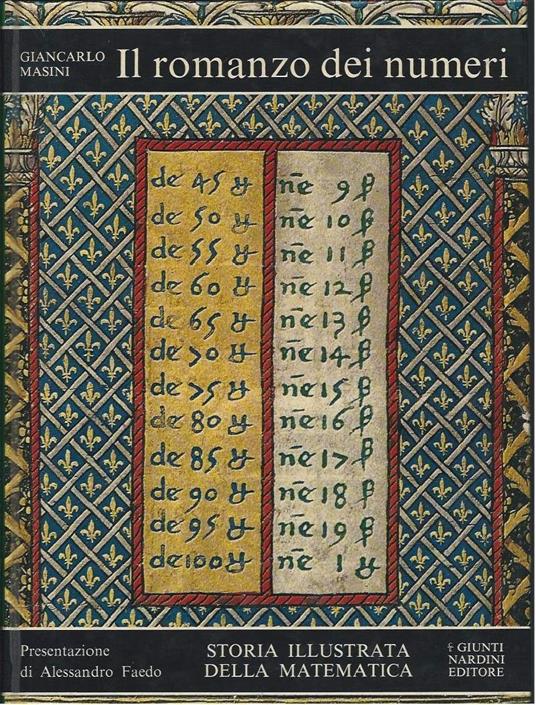 GIANCARLO
MASINI
Il romanzo dei numeri
de 45 n̄e 9
de 50 n̄e 10
de 55 n̄e 11
de 60 n̄e 12
de 65 n̄e 13
de 70 n̄e 14
de 75 n̄e 15
de 80 n̄e 16
de 85 n̄e 17
de 90 n̄e 18
de 95 n̄e 19
de 100 n̄e 1
Presentazione
di Alessandro Faedo
STORIA ILLUSTRATA
DELLA MATEMATICA
GIUNTI
NARDINI
EDITORE